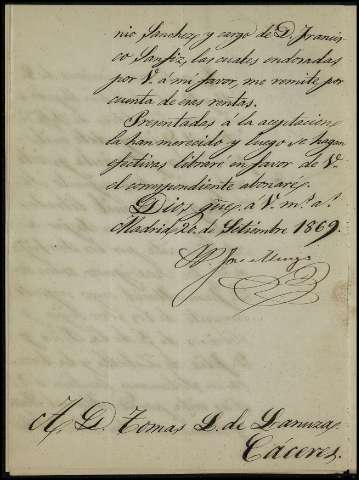 nio Sanchez, y cargo de D. Francis-
co Sanfiz, las cuales endosadas
por V. á mi favor, me remite por
cuenta de esas rentas.
Presentadas á la aceptacion
la han merecido y luego se hagan
efectivas libraré en favor de V.
el correspondiente abonaré.
Dios gue. á V. m.s a.s
Madrid 26 de Setiembre 1869.
José
A D. Tomas L. de Lanuza,
Cáceres.